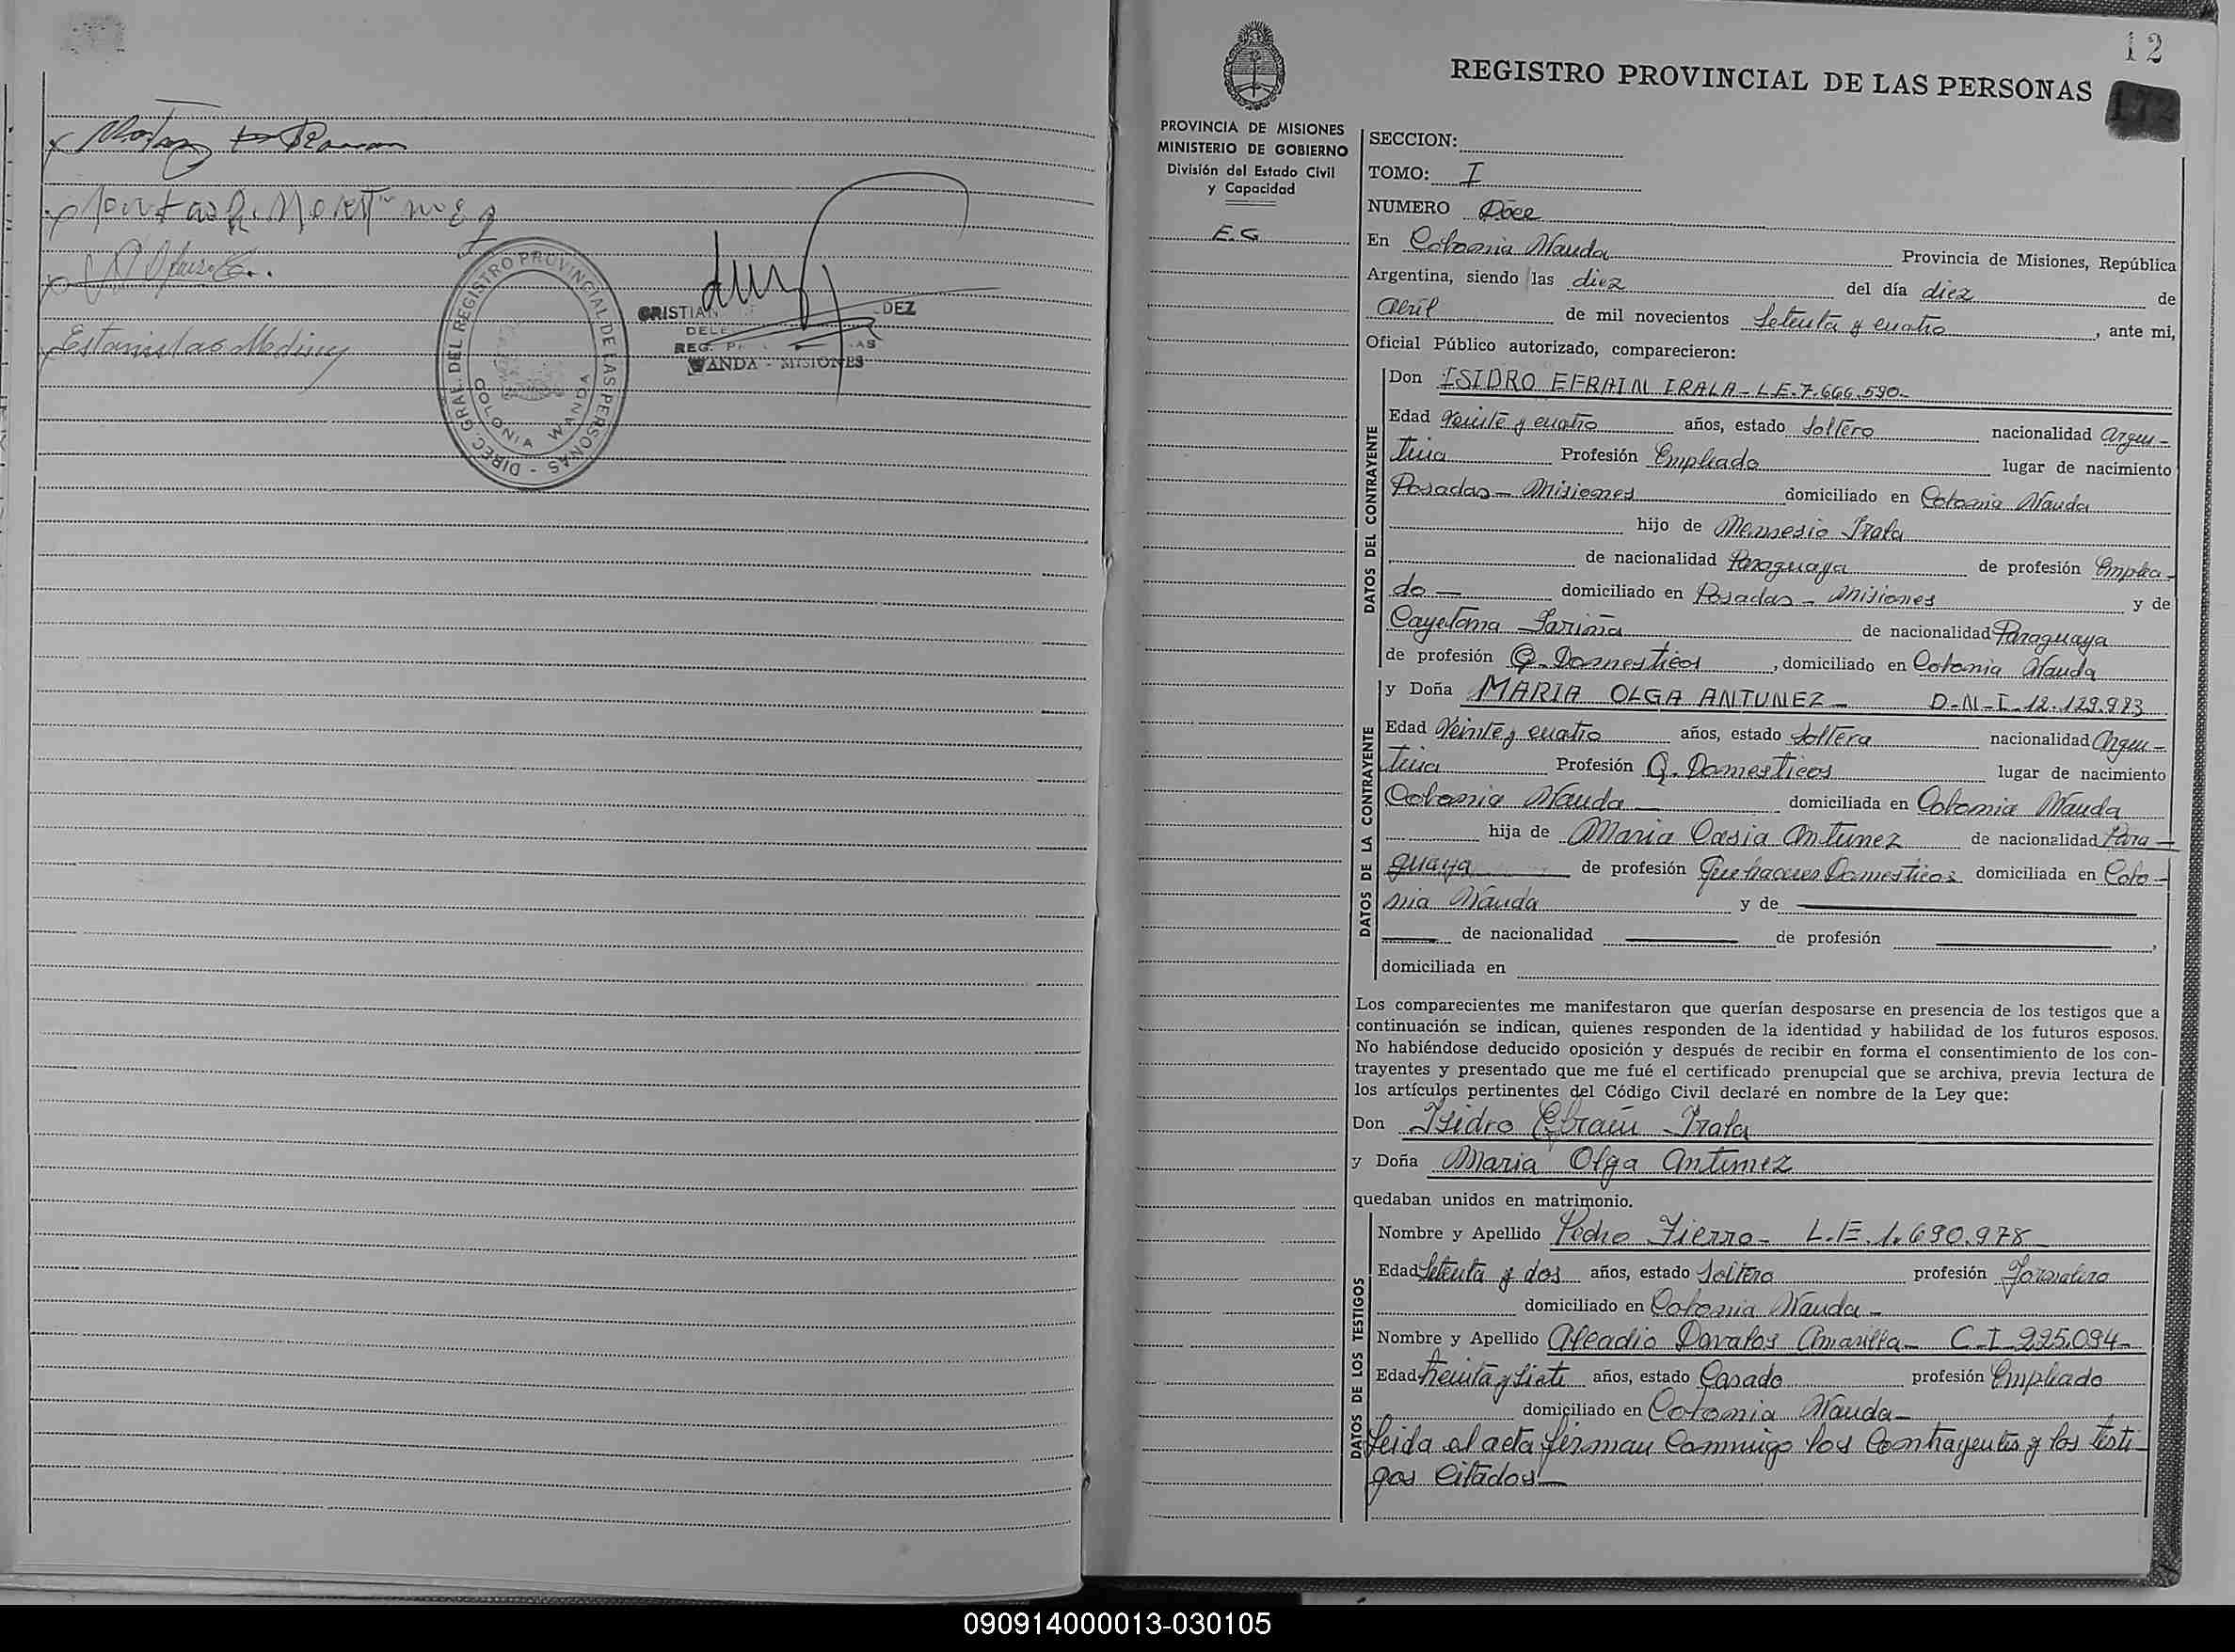 Estanislao Medina
DIREC. GRAL. DEL REGISTRO PROVINCIAL DE LAS PERSONAS -
COLONIA WANDA
CRISTIAN
DEZ
WANDA - MISIONES
12
172
REGISTRO PROVINCIAL DE LAS PERSONAS
PROVINCIA DE MISIONES
MINISTERIO DE GOBIERNO
División del Estado Civil
y Capacidad
E.G
SECCION:
TOMO: I
NUMERO Doce
En Colonia Wanda Provincia de Misiones, República
Argentina, siendo las diez del día diez de
Abril de mil novecientos Setenta y cuatro, ante mi,
Oficial Público autorizado, comparecieron:
DATOS DEL CONTRAYENTE
Don ISIDRO EFRAIN IRALA - L.E. 7.666.590-
Edad Veinte y cuatro años, estado Soltero nacionalidad Argen-
tina Profesión Empleado lugar de nacimiento
Posadas - Misiones domiciliado en Colonia Wanda
hijo de Nemesio Irala
de nacionalidad Paraguaya de profesión Emplea-
do — domiciliado en Posadas - Misiones y de
Cayetana Fariña de nacionalidad Paraguaya
de profesión Q. Domesticos, domiciliado en Colonia Wanda
DATOS DE LA CONTRAYENTE
y Doña MARIA OLGA ANTUNEZ - D-N-I- 12.129.923
Edad Veinte y cuatro años, estado Soltera nacionalidad Argen-
tina Profesión Q. Domesticos lugar de nacimiento
Colonia Wanda — domiciliada en Colonia Wanda
hija de Maria Casia Antunez de nacionalidad Para-
guaya de profesión Quehaceres Domesticos domiciliada en Colo-
nia Wanda y de
de nacionalidad de profesión ,
domiciliada en
Los comparecientes me manifestaron que querían desposarse en presencia de los testigos que a
continuación se indican, quienes responden de la identidad y habilidad de los futuros esposos.
No habiéndose deducido oposición y después de recibir en forma el consentimiento de los con-
trayentes y presentado que me fué el certificado prenupcial que se archiva, previa lectura de
los artículos pertinentes del Código Civil declaré en nombre de la Ley que:
Don Isidro Efrain Irala
y Doña Maria Olga Antunez
quedaban unidos en matrimonio.
DATOS DE LOS TESTIGOS
Nombre y Apellido Pedro Fierro - L.E. 1.690.978
Edad Setenta y dos años, estado Soltero profesión Jornalero
domiciliado en Colonia Wanda -
Nombre y Apellido Aleadio Davalos Amarilla - C-I- 225.094-
Edad Treinta y Siete años, estado Casado profesión Empleado
domiciliado en Colonia Wanda -
Leida el acta firman conmigo los contrayentes y los testi-
gos citados -
090914000013-030105